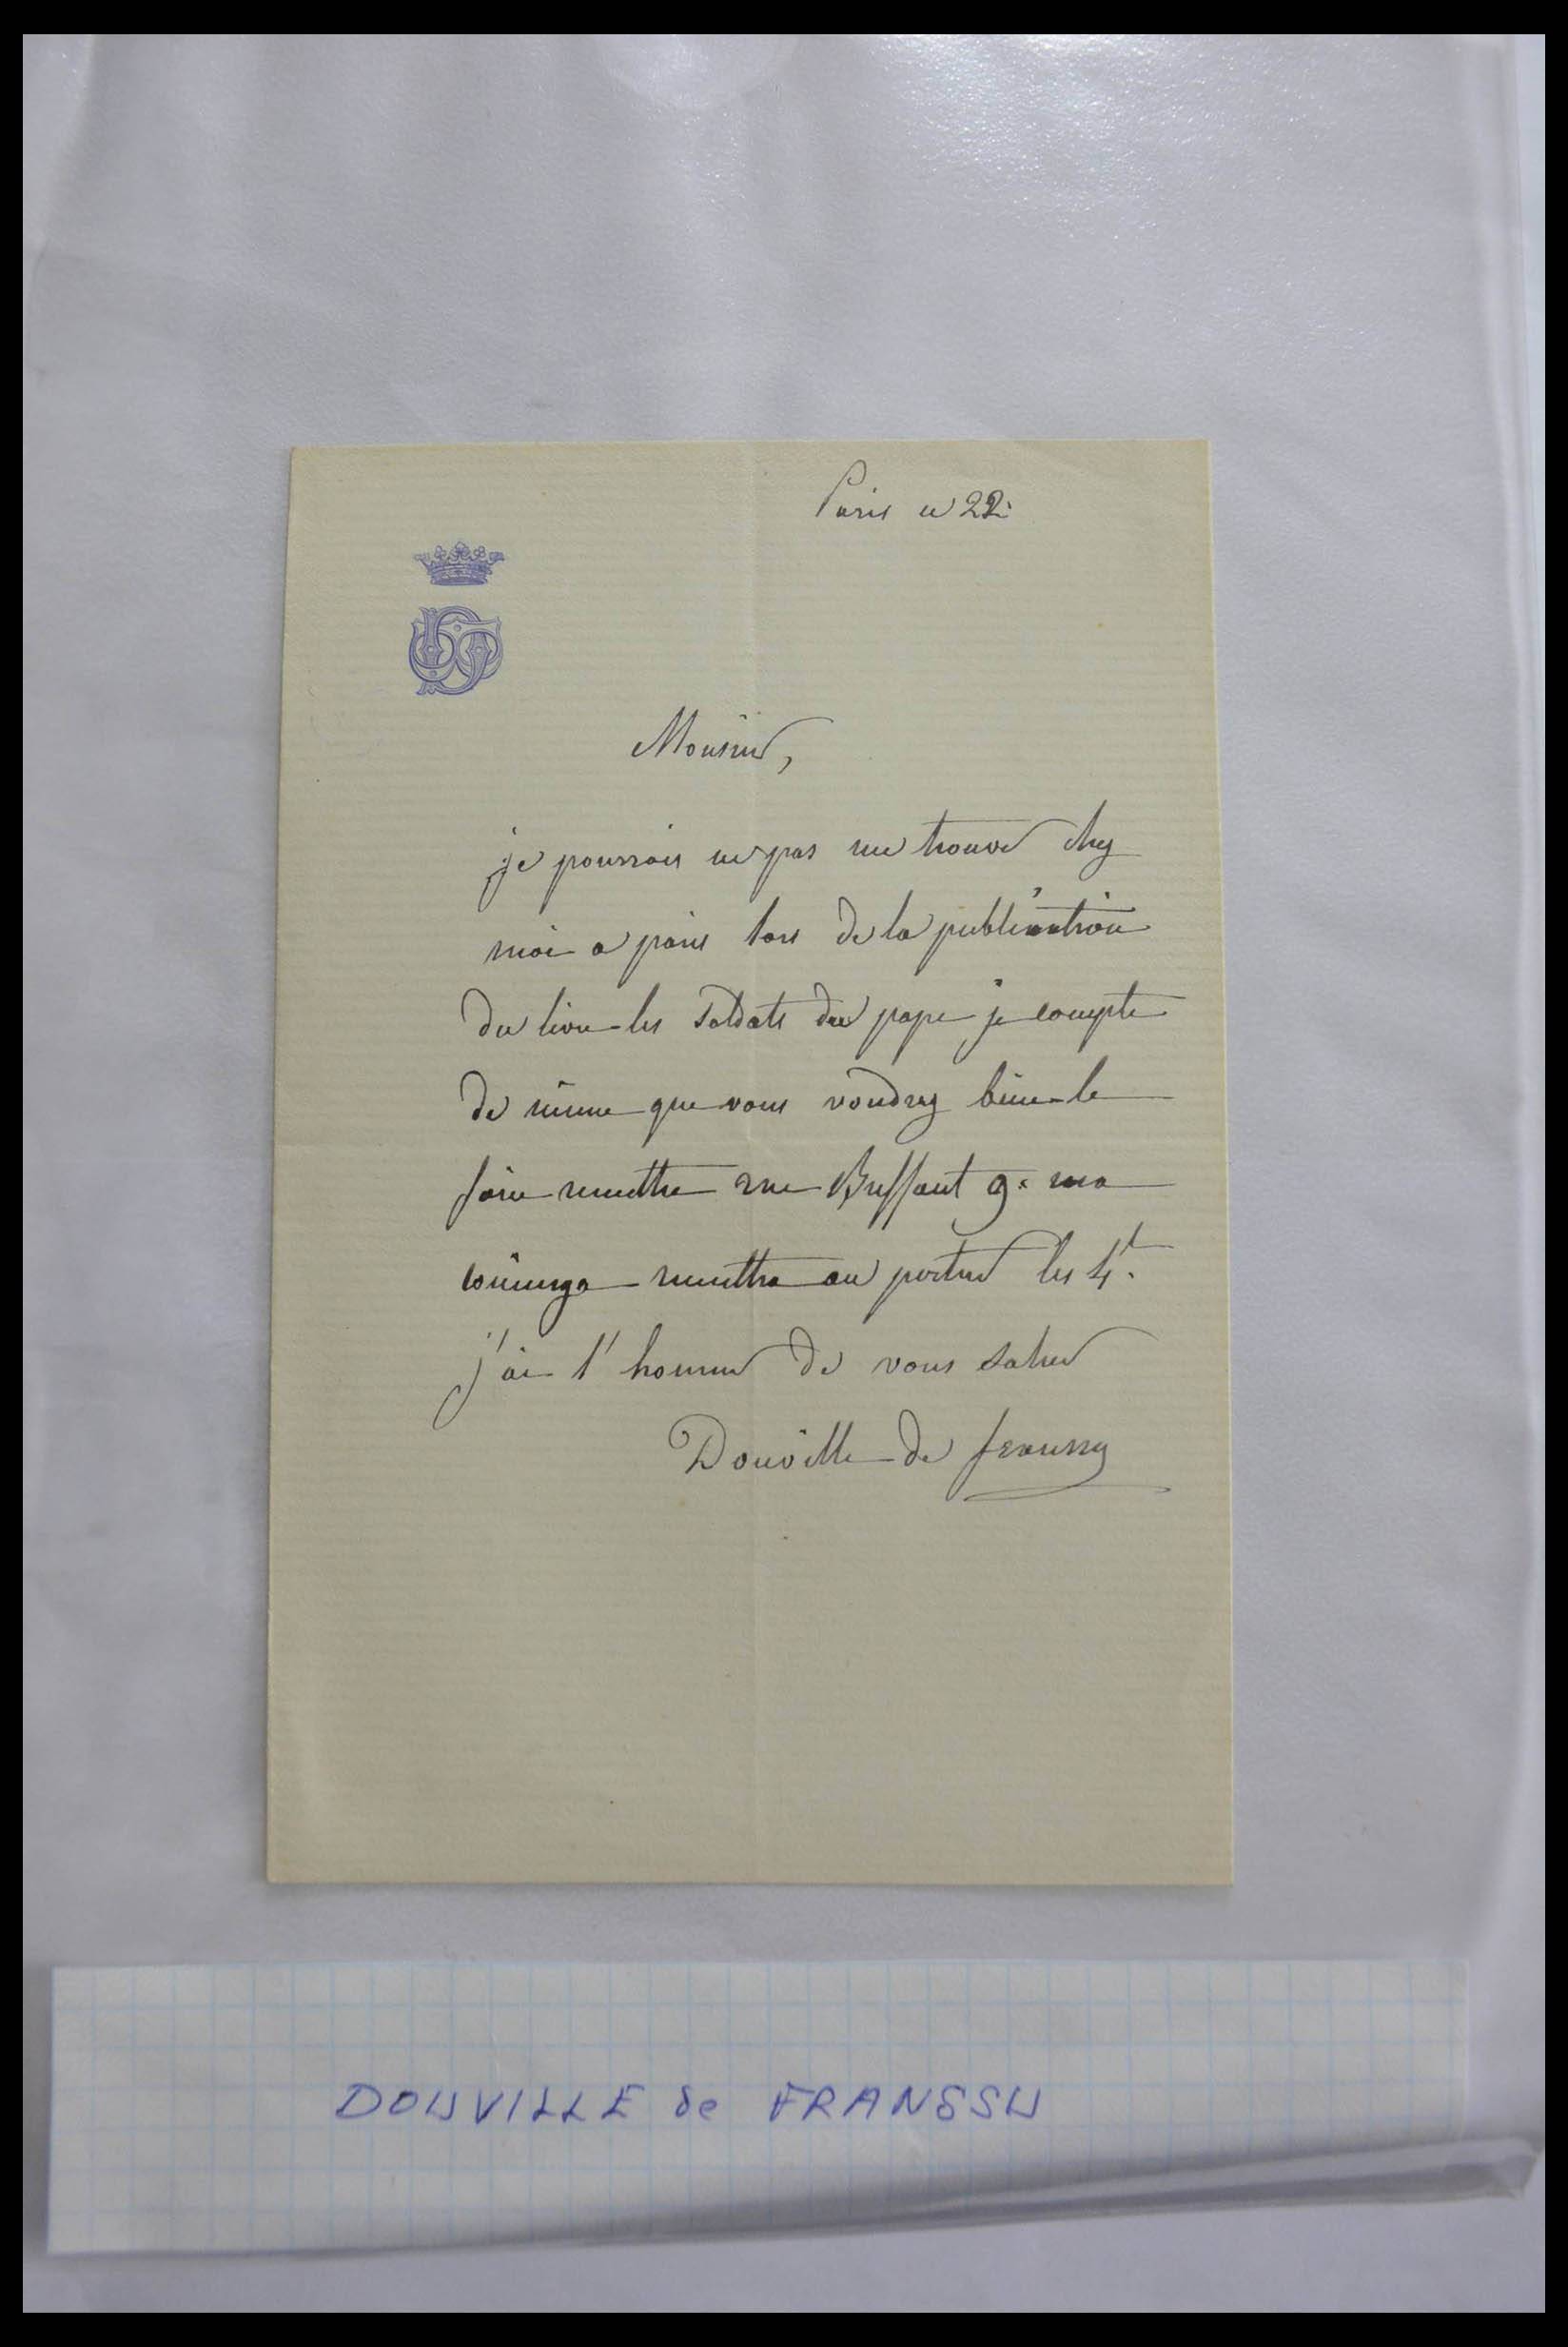 Paris ce 22
Monsieur,
je pourrais ne pas me trouver chez
moi a paris lors de la publication
du livre les soldats du pape je compte
de même que vous voudrez bien le
faire remettre rue Buffaut 9. ma
concierge remettra au porteur les 4 f.
j'ai l'honneur de vous saluer
Douville de franssu
DOUVILLE de FRANSSU